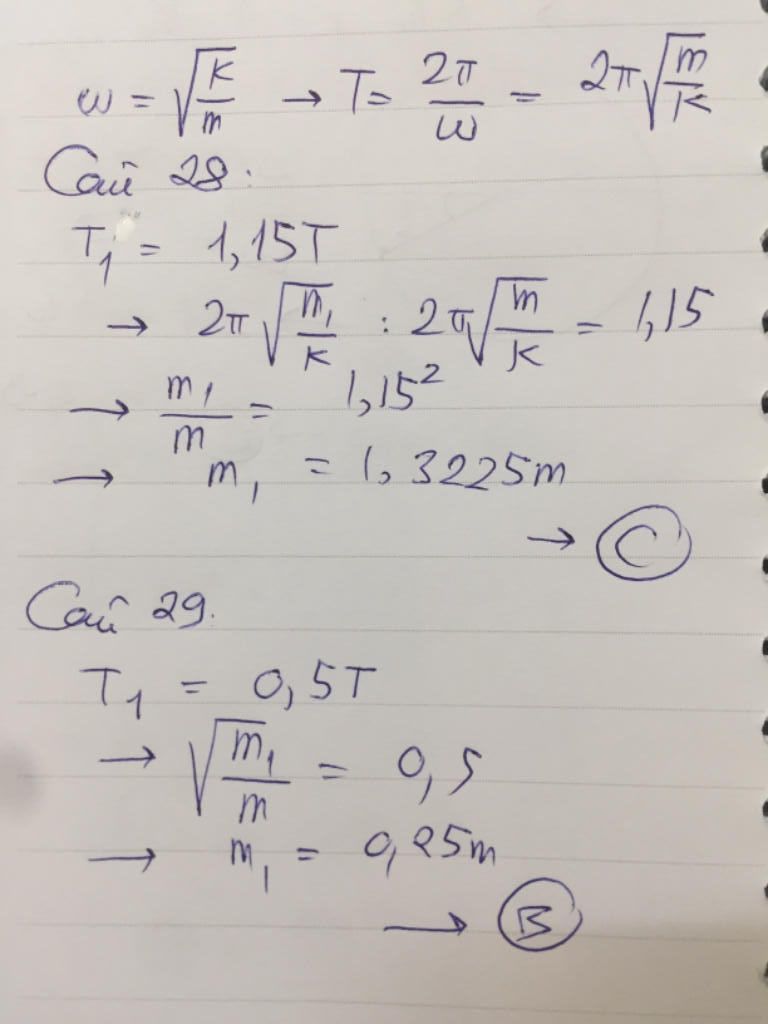 ω = √(k/m) → T = 2π/ω = 2π√(m/k)
Câu 28:
T₁ = 1,15T
→ 2π√(m₁/k) : 2π√(m/k) = 1,15
→ m₁/m = 1,15²
→ m₁ = 1,3225m
→ C
Câu 29.
T₁ = 0,5T
→ √(m₁/m) = 0,5
→ m₁ = 0,25m
→ B